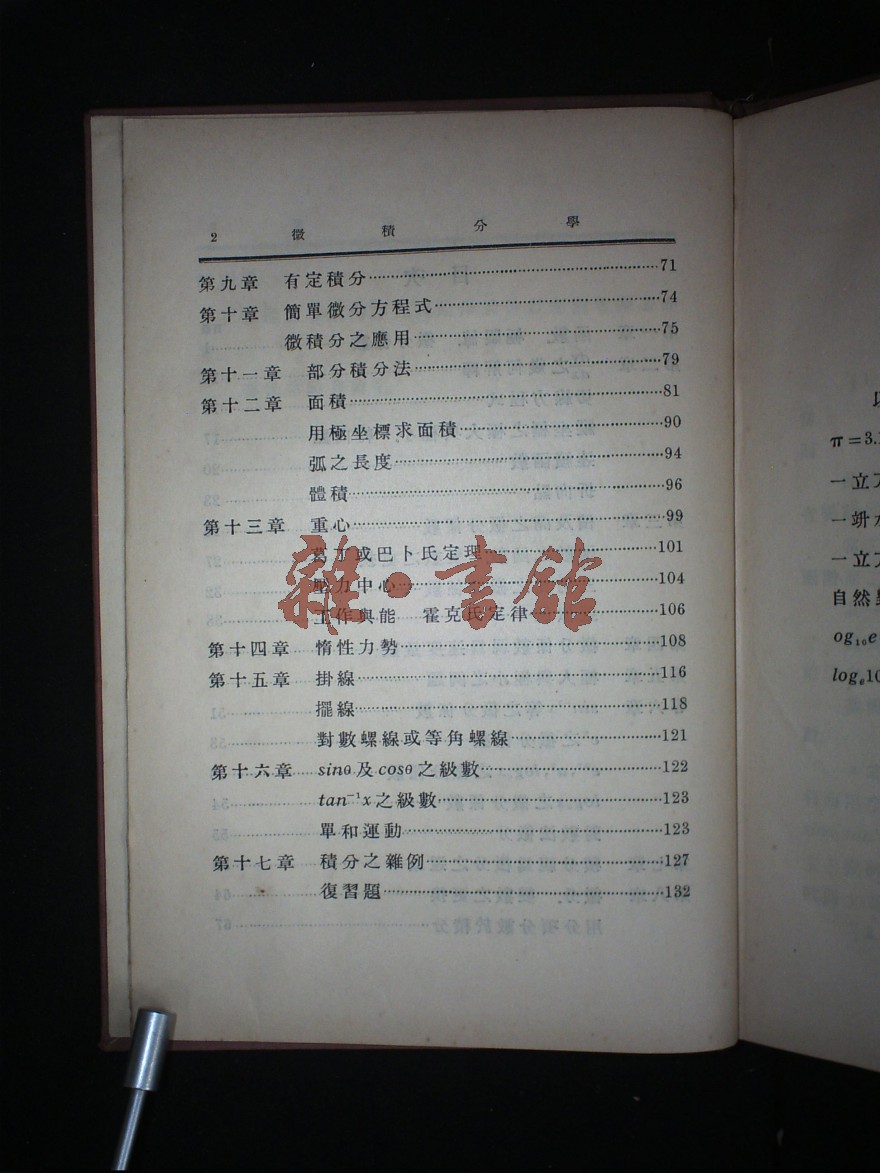 2 微積分學
第九章 有定積分……71
第十章 簡單微分方程式……74
微積分之應用……75
第十一章 部分積分法……79
第十二章 面積……81
用極坐標求面積……90
弧之長度……94
體積……96
第十三章 重心……99
葛丁或巴卜氏定理……101
壓力中心……104
工作與能 霍克氏定律……106
第十四章 惰性力勢……108
第十五章 掛線……116
擺線……118
對數螺線或等角螺線……121
第十六章 sinθ及cosθ之級數……122
tan⁻¹x之級數……123
單和運動……123
第十七章 積分之雜例……127
復習題……132
雜·書館
π=3.
一立
一
一立
自然
og₁₀e
logₑ10